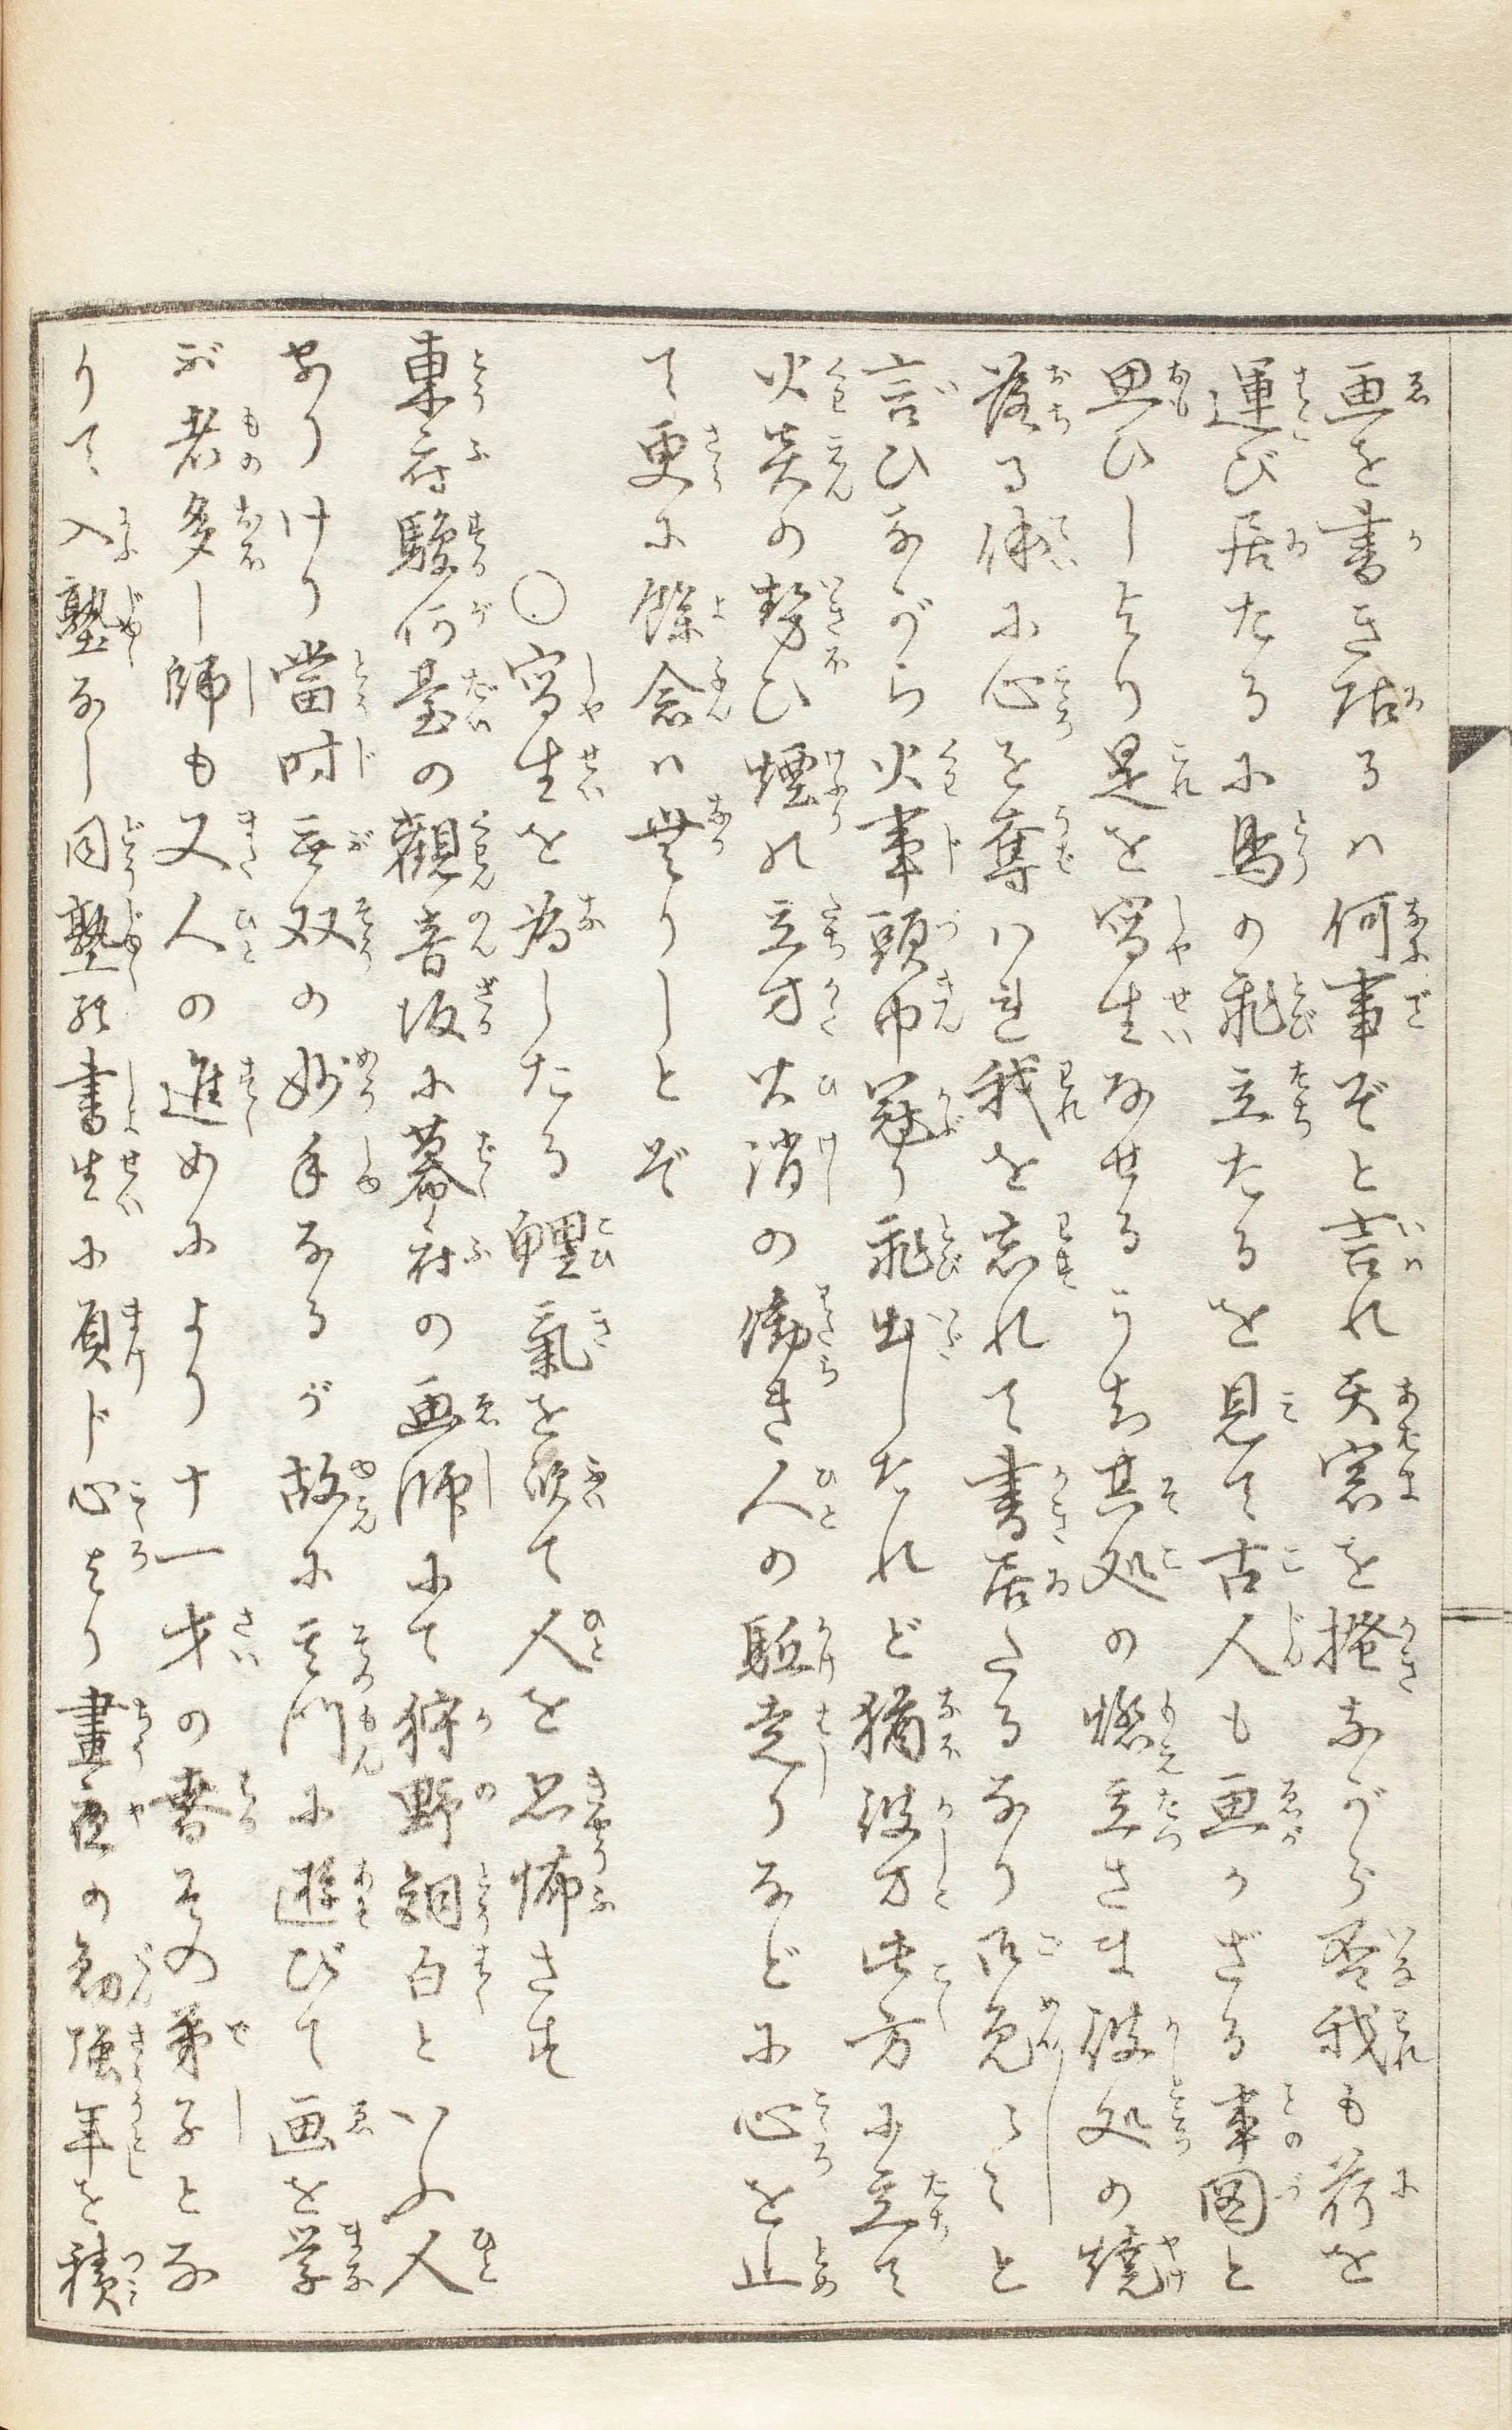 画を書き居るハ何事ぞと言れ天窓を掻ながら否我も荷を
運び居たるに鳥の飛立たるを見て古人も画かざる事図と
思ひしより是を写生なせるうち其処の燃立さま彼処の焼
落る体に心を奪ハれ我を忘れて書居たるなり御免〳〵と
言ひながら火事頭巾冠り飛出したれど猶彼方此方に立て
火炎の勢ひ煙の立方火消の働き人の駈走りなどに心を止
て更に餘念ハ無りしとぞ
○写生を為したる鯉氣を吹て人を恐怖さす
東府駿河臺の觀音坂に幕府の画師にて狩野洞白といふ人
ありけり當時無双の妙手なるが故に其門に遊びて画を学
ぶ者多し師も又人の進めにより十一才の春その弟子とな
りて入塾なし同塾の書生に負じ心より晝夜の勉強年を積